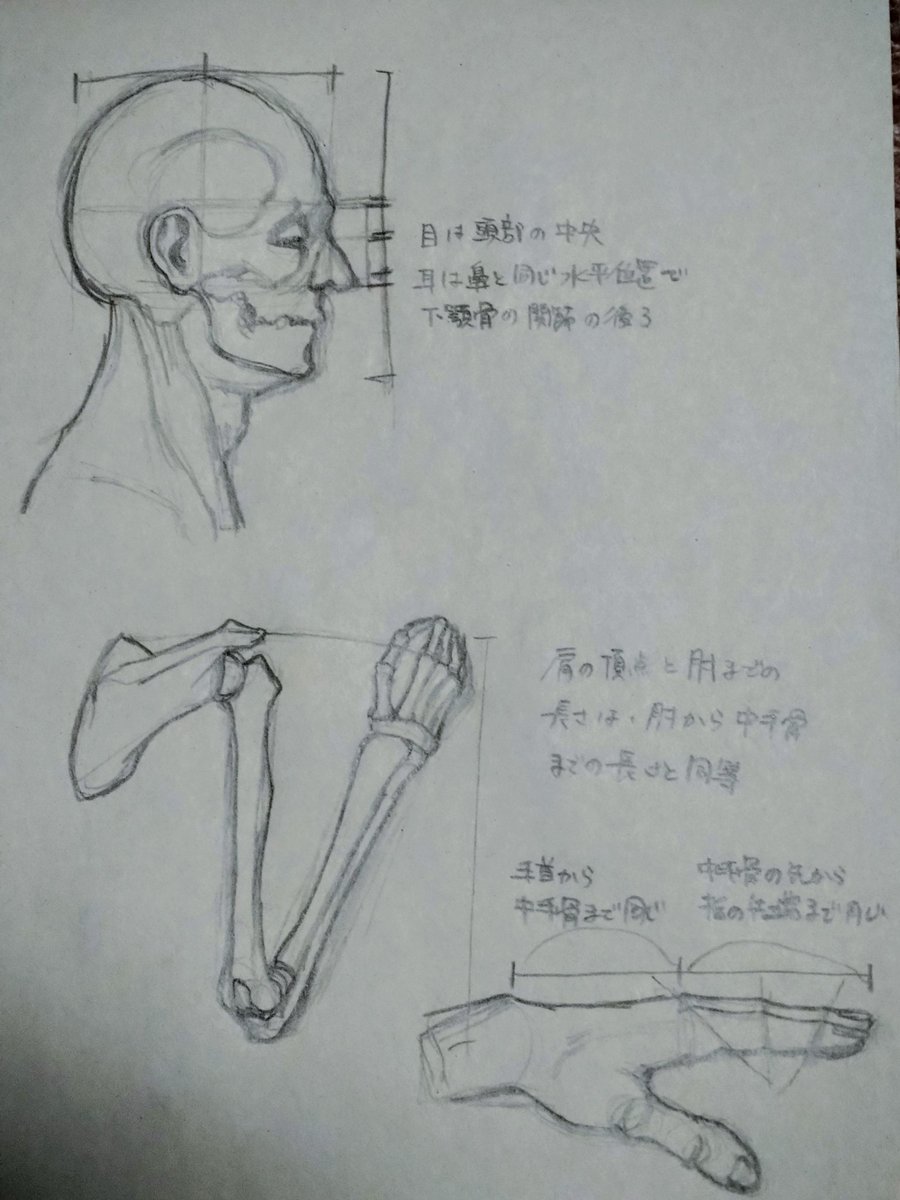 目は頭部の中央
耳は鼻と同じ水平位置で
下顎骨の関節の後ろ
肩の頂点と肘までの
長さは、肘から中手骨
までの長さと同等
手首から
中手骨まで同じ
中手骨の先から
指の先端まで同じ